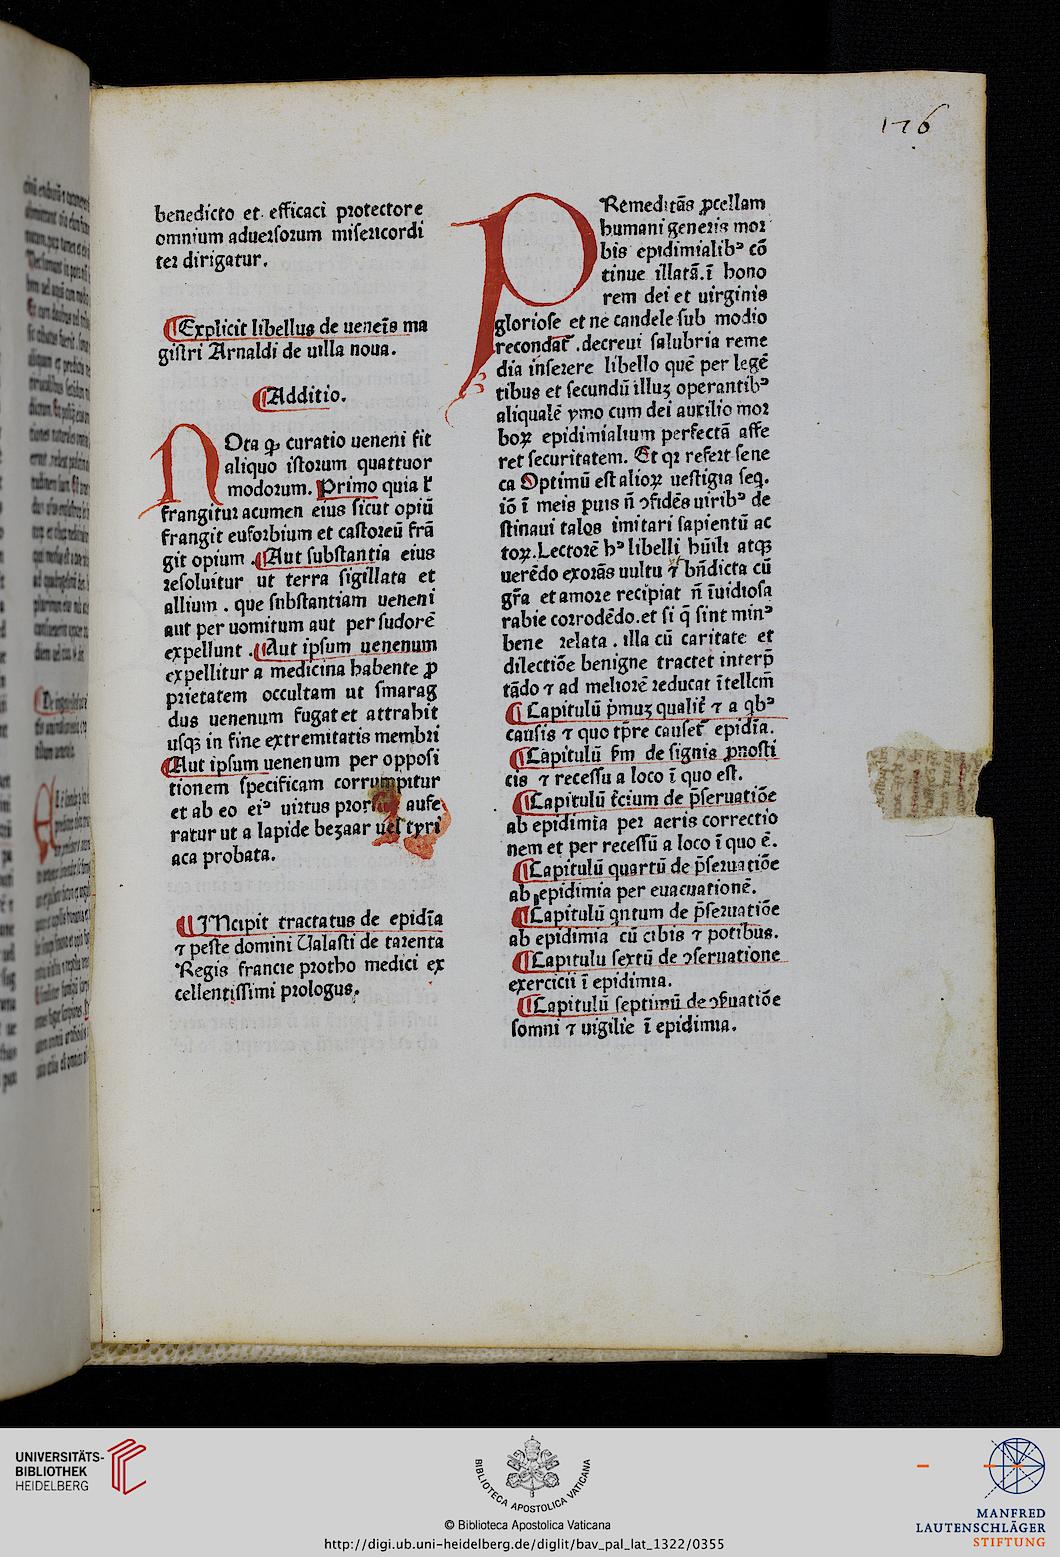 176
benedicto et efficaci protectore
omnium aduersorum misericordi
ter dirigatur.
¶Explicit libellus de ueneīs ma
gistri Arnaldi de uilla noua.
¶Additio.
NOta ꝙ curatio ueneni fit
aliquo istorum quattuor
modorum. Primo quia
frangitur acumen eius sicut opiū
frangit euforbium et castoreū frā
git opium .¶Aut substantia eius
resoluitur ut terra sigillata et
allium . que snbstantiam ueneni
aut per uomitum aut per sudorē
expellunt .¶Aut ipsum uenenum
expellitur a medicina habente ꝓ
prietatem occultam ut smarag
dus uenenum fugat et attrahit
usqꝫ in fine extremitatis membri
¶Aut ipsum uenenum per opposi
tionem specificam corrumpitur
et ab eo eiꝰ uirtus prorsus aufe
ratur ut a lapide bezaar uel tyri
aca probata.
¶INcipit tractatus de epidīa
⁊ peste domini Ualasti de tarenta
Regis francie protho medici ex
cellentissimi prologus.
PRemeditās ꝓcellam
humani generis mor
bis epidimialibꝰ cō
tinue illatā.ī hono
rem dei et uirginis
gloriose et ne candele sub modio
recondat̄ .decreui salubria reme
dia inserere libello quē per legē
tibus et secundū illuꝫ operantibꝰ
aliqualē ymo cum dei auxilio mor
boꝝ epidimialium perfectā affe
ret securitatem. Et qr refert sene
ca Optimū est alioꝝ uestigia seq.
iō ī meis puis n̄ ↄfidēs uiribꝰ de
stinaui talos imitari sapientū ac
toꝝ.Lectorē hꝰ libelli hūili atqꝫ
uerēdo exorās uultu ⁊ bn̄dicta cū
gr̄a et amore recipiat n̄ īuidiosa
rabie corrodēdo.et si q̄ sint minꝰ
bene relata . illa cū caritate et
dilectiōe benigne tractet interp̄
tādo ⁊ ad meliorē reducat ītellcm̄
¶Capitulū p̄muꝫ qualit̄ ⁊ a qbꝰ
causis ⁊ quo tp̄re causet̄ epidīa.
¶Capitulū ẜm de signis ꝓnosti
cis ⁊ recessu a loco ī quo est.
¶Capitulū t̄cium de p̄seruatiōe
ab epidimia per aeris correctio
nem et per recessū a loco ī quo ē.
¶Capitulū quartū de p̄seruatiōe
ab epidimia per euacuationē.
¶Capitulū qntum de p̄seruatiōe
ab epidimia cū cibis ⁊ potibus.
¶Capitulu sextū de ↄseruatione
exercicii ī epidimia.
¶Capitulū septimū de ↄẜuatiōe
somni ⁊ uigilie ī epidimia.
UNIVERSITÄTS-
BIBLIOTHEK
HEIDELBERG
BIBLIOTECA APOSTOLICA VATICANA
© Biblioteca Apostolica Vaticana
http://digi.ub.uni-heidelberg.de/diglit/bav_pal_lat_1322/0355
MANFRED
LAUTENSCHLÄGER
STIFTUNG